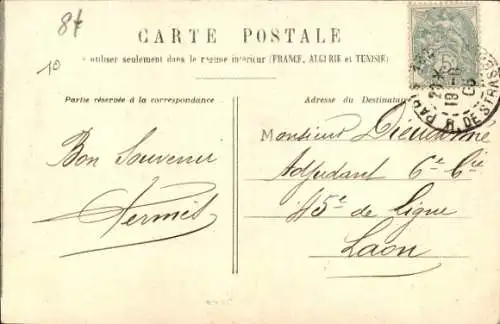 8f
10
CARTE POSTALE
à utiliser seulement dans le régime intérieur (FRANCE, ALGERIE et TUNISIE)
Partie réservée à la correspondance
Adresse du Destinataire
Bon Souvenir
Monsieur Dieudonné
Adjudant 6e Cie
45e de ligne
Laon
PARIS R. DE STRASB
22
19
05
5